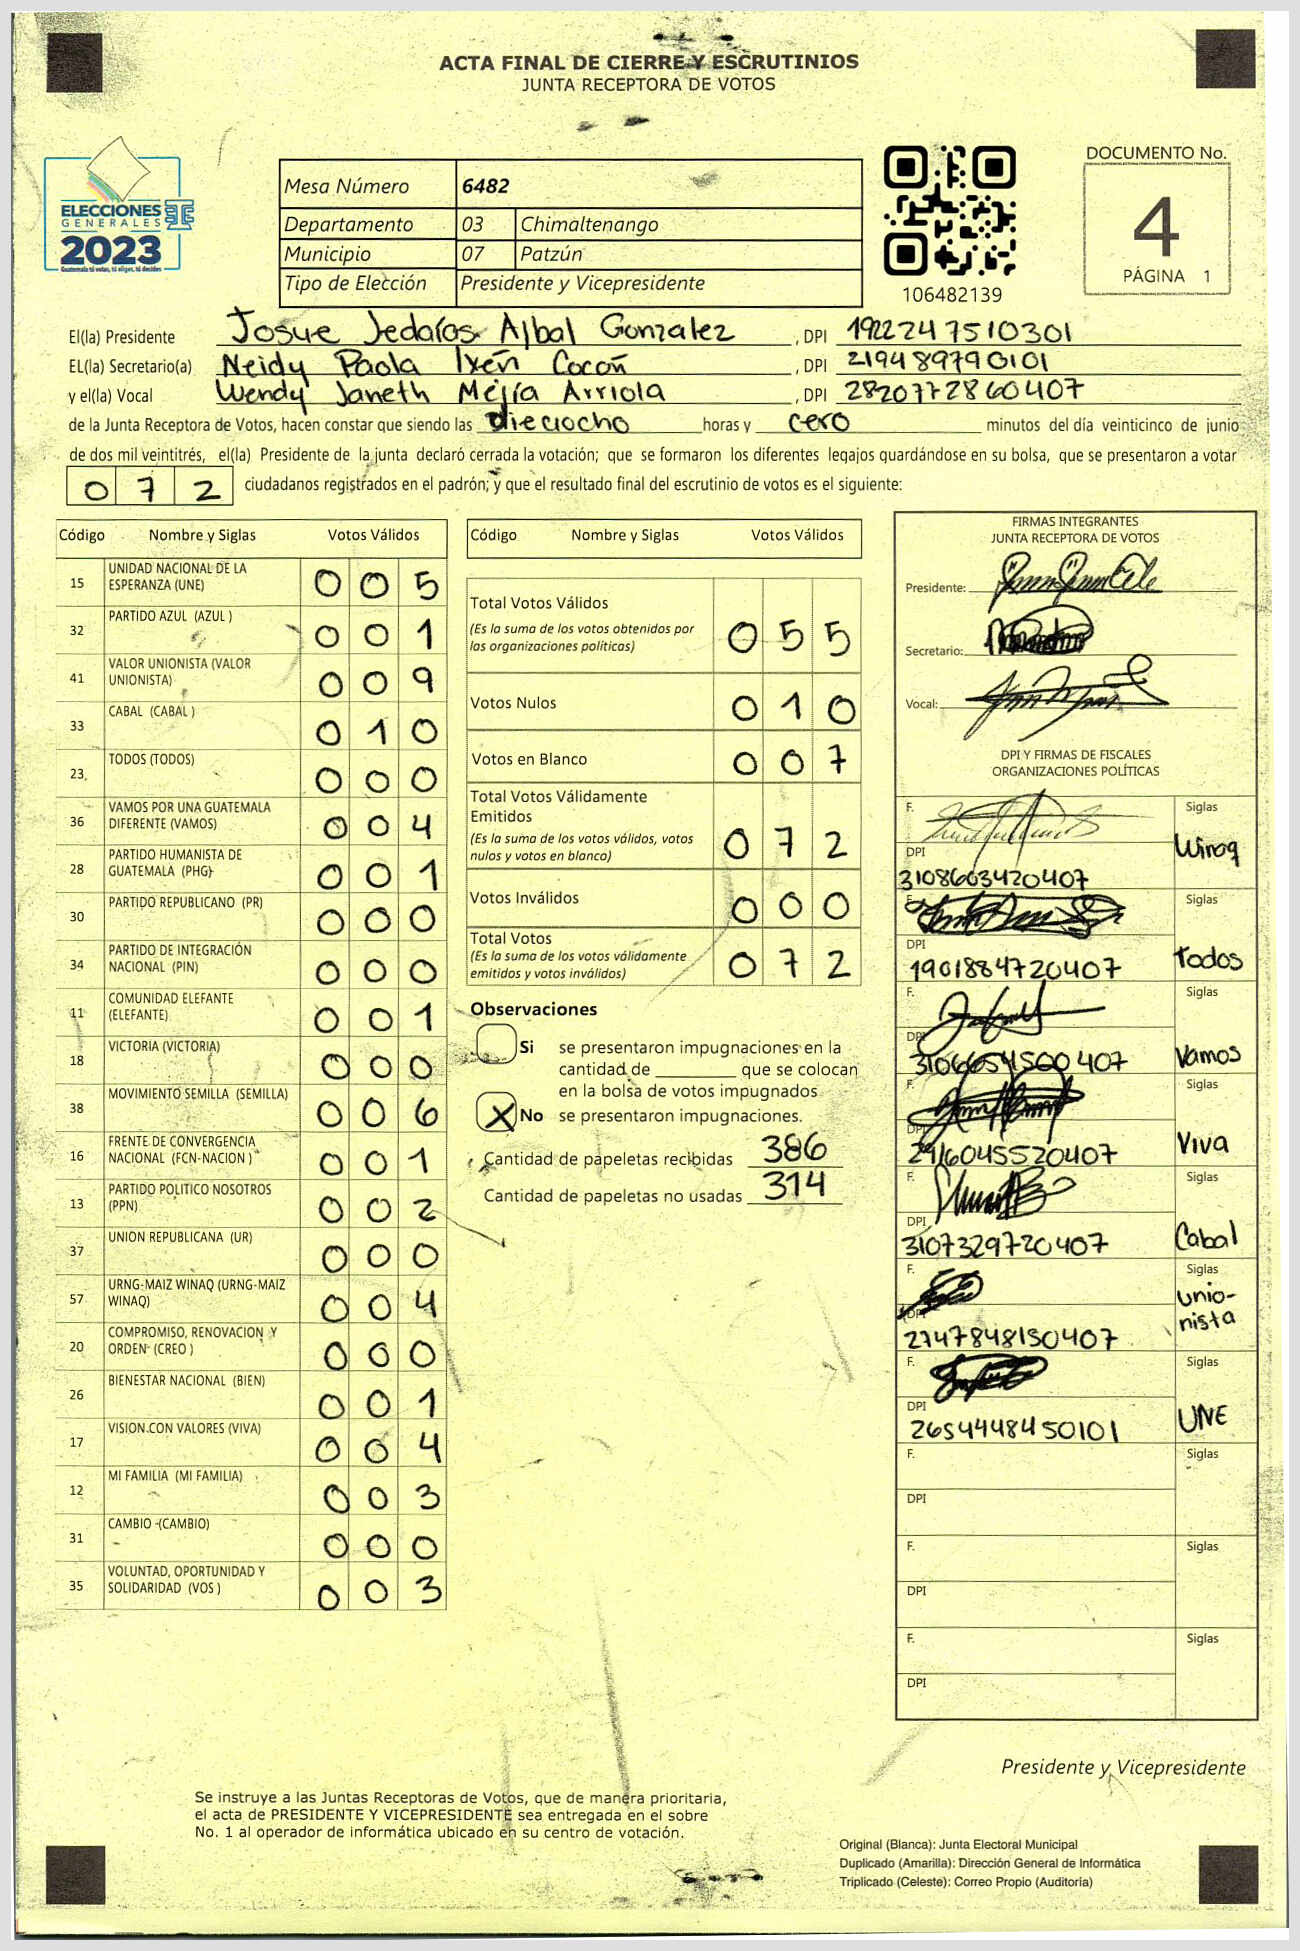 ACTA FINAL DE CIERRE Y ESCRUTINIOS
JUNTA RECEPTORA DE VOTOS
ELECCIONES
GENERALES
2023
Guatemala tú votas, tú eliges, tú decides
Mesa Número 6482
Departamento 03 Chimaltenango
Municipio 07 Patzún
Tipo de Elección Presidente y Vicepresidente
106482139
DOCUMENTO No.
4
PÁGINA 1
El(la) Presidente Josue Jedaías Ajbal Gonzalez , DPI 1922247510301
EL(la) Secretario(a) Neidy Paola Ixén Cocón , DPI 2194897990101
y el(la) Vocal Wendy Janeth Mejía Arriola , DPI 2820772860407
de la Junta Receptora de Votos, hacen constar que siendo las dieciocho horas y cero minutos del día veinticinco de junio
de dos mil veintitrés, el(la) Presidente de la junta declaró cerrada la votación; que se formaron los diferentes legajos guardándose en su bolsa, que se presentaron a votar
0 7 2 ciudadanos registrados en el padrón; y que el resultado final del escrutinio de votos es el siguiente:
Código Nombre y Siglas Votos Válidos
15 UNIDAD NACIONAL DE LA ESPERANZA (UNE) 0 0 5
32 PARTIDO AZUL (AZUL ) 0 0 1
41 VALOR UNIONISTA (VALOR UNIONISTA) 0 0 9
33 CABAL (CABAL ) 0 1 0
23 TODOS (TODOS) 0 0 0
36 VAMOS POR UNA GUATEMALA DIFERENTE (VAMOS) 0 0 4
28 PARTIDO HUMANISTA DE GUATEMALA (PHG) 0 0 1
30 PARTIDO REPUBLICANO (PR) 0 0 0
34 PARTIDO DE INTEGRACIÓN NACIONAL (PIN) 0 0 0
11 COMUNIDAD ELEFANTE (ELEFANTE) 0 0 1
18 VICTORIA (VICTORIA) 0 0 0
38 MOVIMIENTO SEMILLA (SEMILLA) 0 0 6
16 FRENTE DE CONVERGENCIA NACIONAL (FCN-NACION ) 0 0 1
13 PARTIDO POLITICO NOSOTROS (PPN) 0 0 2
37 UNION REPUBLICANA (UR) 0 0 0
57 URNG-MAIZ WINAQ (URNG-MAIZ WINAQ) 0 0 4
20 COMPROMISO, RENOVACION Y ORDEN (CREO ) 0 0 0
26 BIENESTAR NACIONAL (BIEN) 0 0 1
17 VISION CON VALORES (VIVA) 0 0 4
12 MI FAMILIA (MI FAMILIA) 0 0 3
31 CAMBIO (CAMBIO) 0 0 0
35 VOLUNTAD, OPORTUNIDAD Y SOLIDARIDAD (VOS ) 0 0 3
Código Nombre y Siglas Votos Válidos
Total Votos Válidos
(Es la suma de los votos obtenidos por
las organizaciones políticas) 0 5 5
Votos Nulos 0 1 0
Votos en Blanco 0 0 7
Total Votos Válidamente
Emitidos
(Es la suma de los votos válidos, votos
nulos y votos en blanco) 0 7 2
Votos Inválidos 0 0 0
Total Votos
(Es la suma de los votos válidamente
emitidos y votos inválidos) 0 7 2
Observaciones
Si se presentaron impugnaciones en la
cantidad de ________ que se colocan
en la bolsa de votos impugnados
X No se presentaron impugnaciones.
Cantidad de papeletas recibidas 386
Cantidad de papeletas no usadas 314
FIRMAS INTEGRANTES
JUNTA RECEPTORA DE VOTOS
Presidente:
Secretario:
Vocal:
DPI Y FIRMAS DE FISCALES
ORGANIZACIONES POLÍTICAS
F. Siglas
DPI Winaq
3108603420407
F. Siglas
DPI
1901884720407 Todos
F. Siglas
DPI
3106654500407 Vamos
F. Siglas
DPI
2916045520407 Viva
F. Siglas
DPI
3107329720407 Cabal
F. Siglas
DPI unio-
nista
2747848150407
F. Siglas
DPI
2654448450101 UNE
F. Siglas
DPI
F. Siglas
DPI
F. Siglas
DPI
Presidente y Vicepresidente
Se instruye a las Juntas Receptoras de Votos, que de manera prioritaria,
el acta de PRESIDENTE Y VICEPRESIDENTE sea entregada en el sobre
No. 1 al operador de informática ubicado en su centro de votación.
Original (Blanca): Junta Electoral Municipal
Duplicado (Amarilla): Dirección General de Informática
Triplicado (Celeste): Correo Propio (Auditoría)